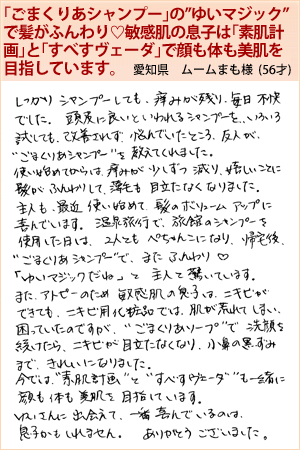 「ごまくりあシャンプー」の”ゆいマジック”
で髪がふんわり♡敏感肌の息子は「素肌計
画」と「すべすべヴェーダ」で顔も体も美肌を
目指しています。 愛知県 ムームまも様 (56才)
しっかりシャンプーしても、痒みが残り、毎日不快
でした。頭皮に良いといわれるシャンプーを、いろいろ
試しても、改善されず、悩んでいたところ、友人が、
“ごまくりあシャンプー”を教えてくれました。
使い始めてからは、痒みが少しずつ減り、嬉しいことに
髪がふんわりして、薄毛も目立たなくなりました。
主人も、最近使い始めて、髪のボリュームアップに
喜んでいます。温泉旅行で、旅館のシャンプーを
使用した日は、2人ともぺちゃんこになり、帰宅後、
“ごまくりあシャンプー”で、またふんわり♡
「ゆいマジックだね」と主人と驚いています。
また、アトピーのため敏感肌の息子は、ニキビが
できても、ニキビ用化粧品では、肌が荒れてしまい、
困っていたのですが、“ごまくりあソープ”で洗顔を
続けたら、ニキビが目立たなくなり、小鼻の黒ずみ
まで、きれいになりました。
今では、“素肌計画”と“すべすべヴェーダ”も一緒に
顔も体も美肌を目指しています。
ゆいさんに出会えて、一番喜んでいるのは、
息子かもしれません。 ありがとうございました。